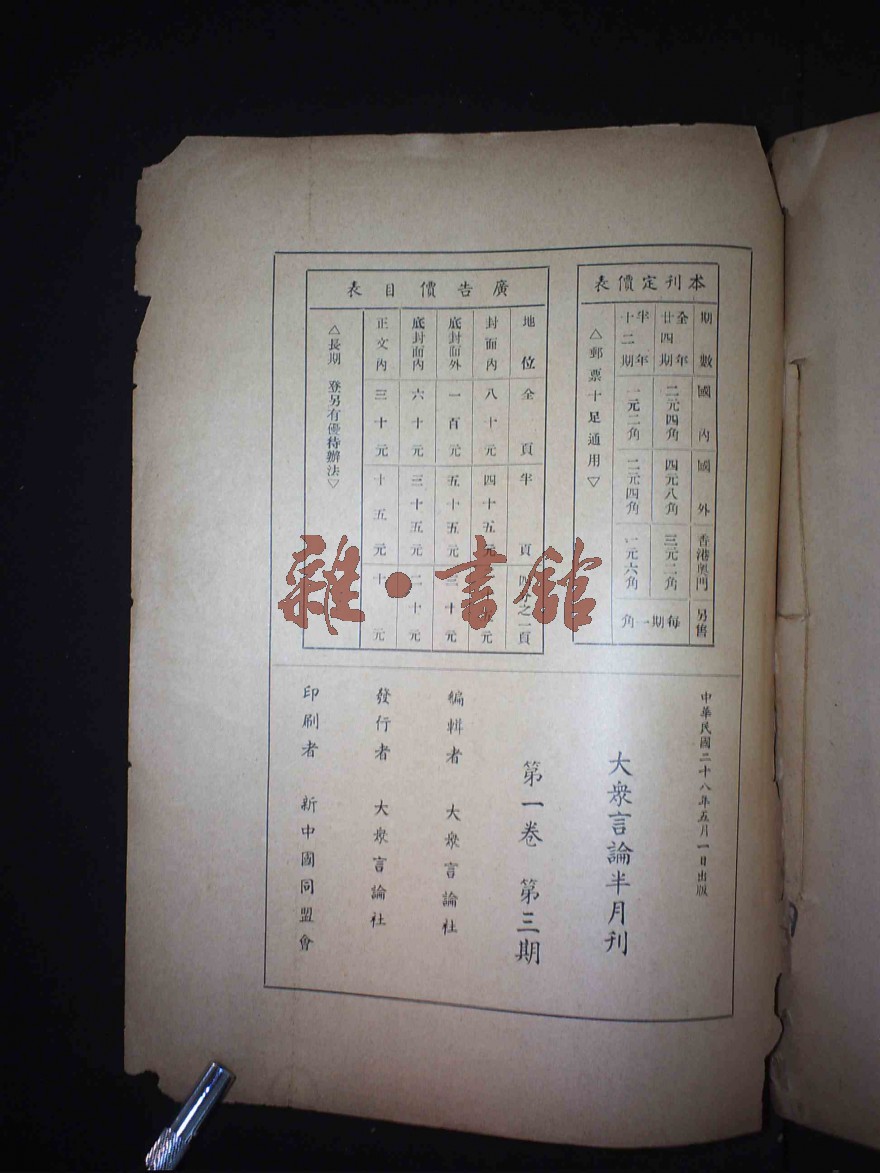 本刊定價表
期數 國內 國外 香港奧門 另售
全年廿四期 二元四角 四元八角 三元二角 每期一角
半年十二期 一元二角 二元四角 一元六角
△郵票十足通用▽
廣告價目表
地位 全頁 半頁 之一頁
封面內 八十元 四十五元 元
底封面外 一百元 五十五元 三十元
底封面內 六十元 三十五元 二十元
正文內 三十元 十五元 十元
△長期 登另有優待辦法▽
中華民國二十八年五月一日出版
大衆言論半月刊
第一卷 第三期
編輯者 大衆言論社
發行者 大衆言論社
印刷者 新中國同盟會
雜·書館